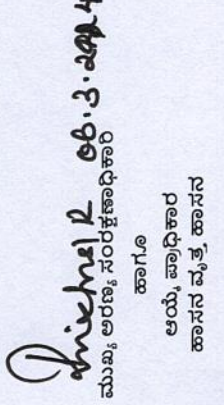 06.3.2024
ಮುಖ್ಯ ಅರಣ್ಯ ಸಂರಕ್ಷಣಾಧಿಕಾರಿ
ಹಾಗೂ
ಆಯ್ಕೆ ಪ್ರಾಧಿಕಾರ
ಹಾಸನ ವೃತ್ತ ಹಾಸನ